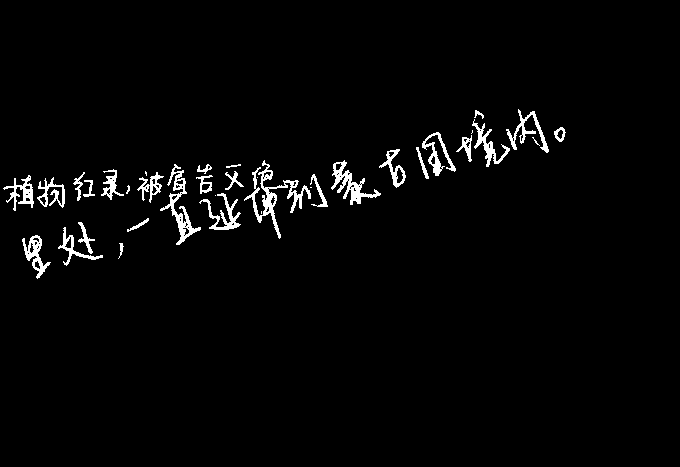 植物红录,被宣告灭绝
里处,一直延伸到蒙古国境内。